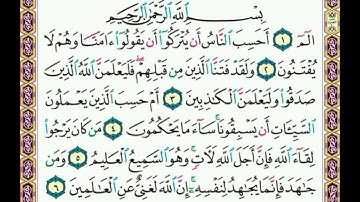 بِسْمِ ٱللَّهِ ٱلرَّحْمَٰنِ ٱلرَّحِيمِ
الٓمٓ ١ أَحَسِبَ ٱلنَّاسُ أَن يُتْرَكُوٓا۟ أَن يَقُولُوٓا۟ ءَامَنَّا وَهُمْ لَا
يُفْتَنُونَ ٢ وَلَقَدْ فَتَنَّا ٱلَّذِينَ مِن قَبْلِهِمْ ۖ فَلَيَعْلَمَنَّ ٱللَّهُ ٱلَّذِينَ
صَدَقُوا۟ وَلَيَعْلَمَنَّ ٱلْكَٰذِبِينَ ٣ أَمْ حَسِبَ ٱلَّذِينَ يَعْمَلُونَ
ٱلسَّيِّـَٔاتِ أَن يَسْبِقُونَا ۚ سَآءَ مَا يَحْكُمُونَ ٤ مَن كَانَ يَرْجُوا۟
لِقَآءَ ٱللَّهِ فَإِنَّ أَجَلَ ٱللَّهِ لَـَٔاتٍ ۚ وَهُوَ ٱلسَّمِيعُ ٱلْعَلِيمُ ٥ وَمَن
جَٰهَدَ فَإِنَّمَا يُجَٰهِدُ لِنَفْسِهِۦٓ ۚ إِنَّ ٱللَّهَ لَغَنِىٌّ عَنِ ٱلْعَٰلَمِينَ ٦